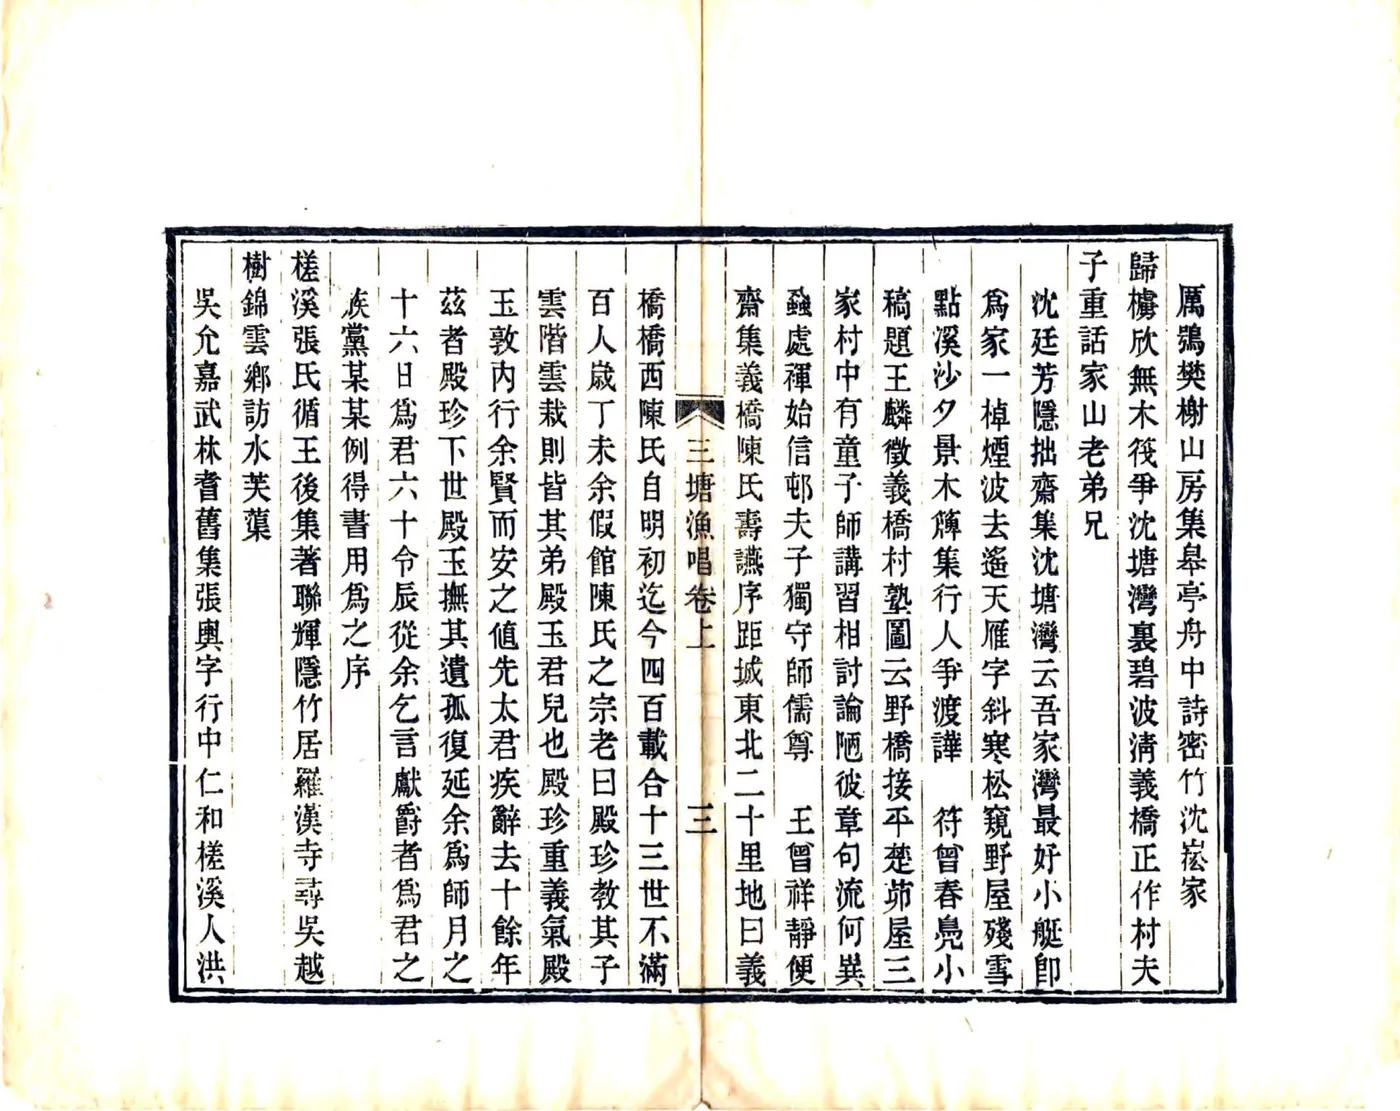 厲鶚樊榭山房集皋亭舟中詩密竹沈崧家
歸櫓欣無木筏爭沈塘灣裏碧波淸義橋正作村夫
子重話家山老弟兄
沈廷芳隱拙齋集沈塘灣云吾家灣最好小艇卽
爲家一棹煙波去遙天雁字斜寒松窺野屋殘雪
點溪沙夕景木簰集行人爭渡譁　符曾春鳧小
稿題王麟徵義橋村塾圖云野橋接平楚茆屋三
家村中有童子師講習相討論陋彼章句流何異
蝨處褌始信邨夫子獨守師儒尊　王曾祥靜便
齋集義橋陳氏壽讌序距城東北二十里地曰義
三塘漁唱卷上　三
橋橋西陳氏自明初迄今四百載合十三世不滿
百人歲丁未余假館陳氏之宗老曰殿珍教其子
雲階雲栽則皆其弟殿玉君兒也殿珍重義氣殿
玉敦內行余賢而安之値先太君疾辭去十餘年
茲者殿珍下世殿玉撫其遺孤復延余爲師月之
十六日爲君六十令辰從余乞言獻爵者爲君之
族黨某某例得書用爲之序
槎溪張氏循王後集著聯輝隱竹居羅漢寺尋吳越
樹錦雲鄉訪水芙蕖
吳允嘉武林耆舊集張輿字行中仁和槎溪人洪